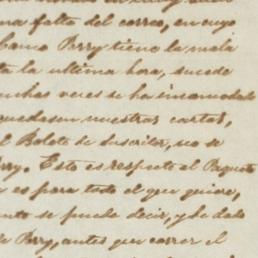 na falta del correo, en cuyo
banco Perry tiene la mala
ta la ultima hora, sucede
uchas veces se ha incomodado
quedasen nuestras cartas,
l Boleto de Suscritor, no se
erry. Esto es respecto al Paquete
es para todo el que quiere,
nto se puede decir, y he dado
Perry, antes que correr el